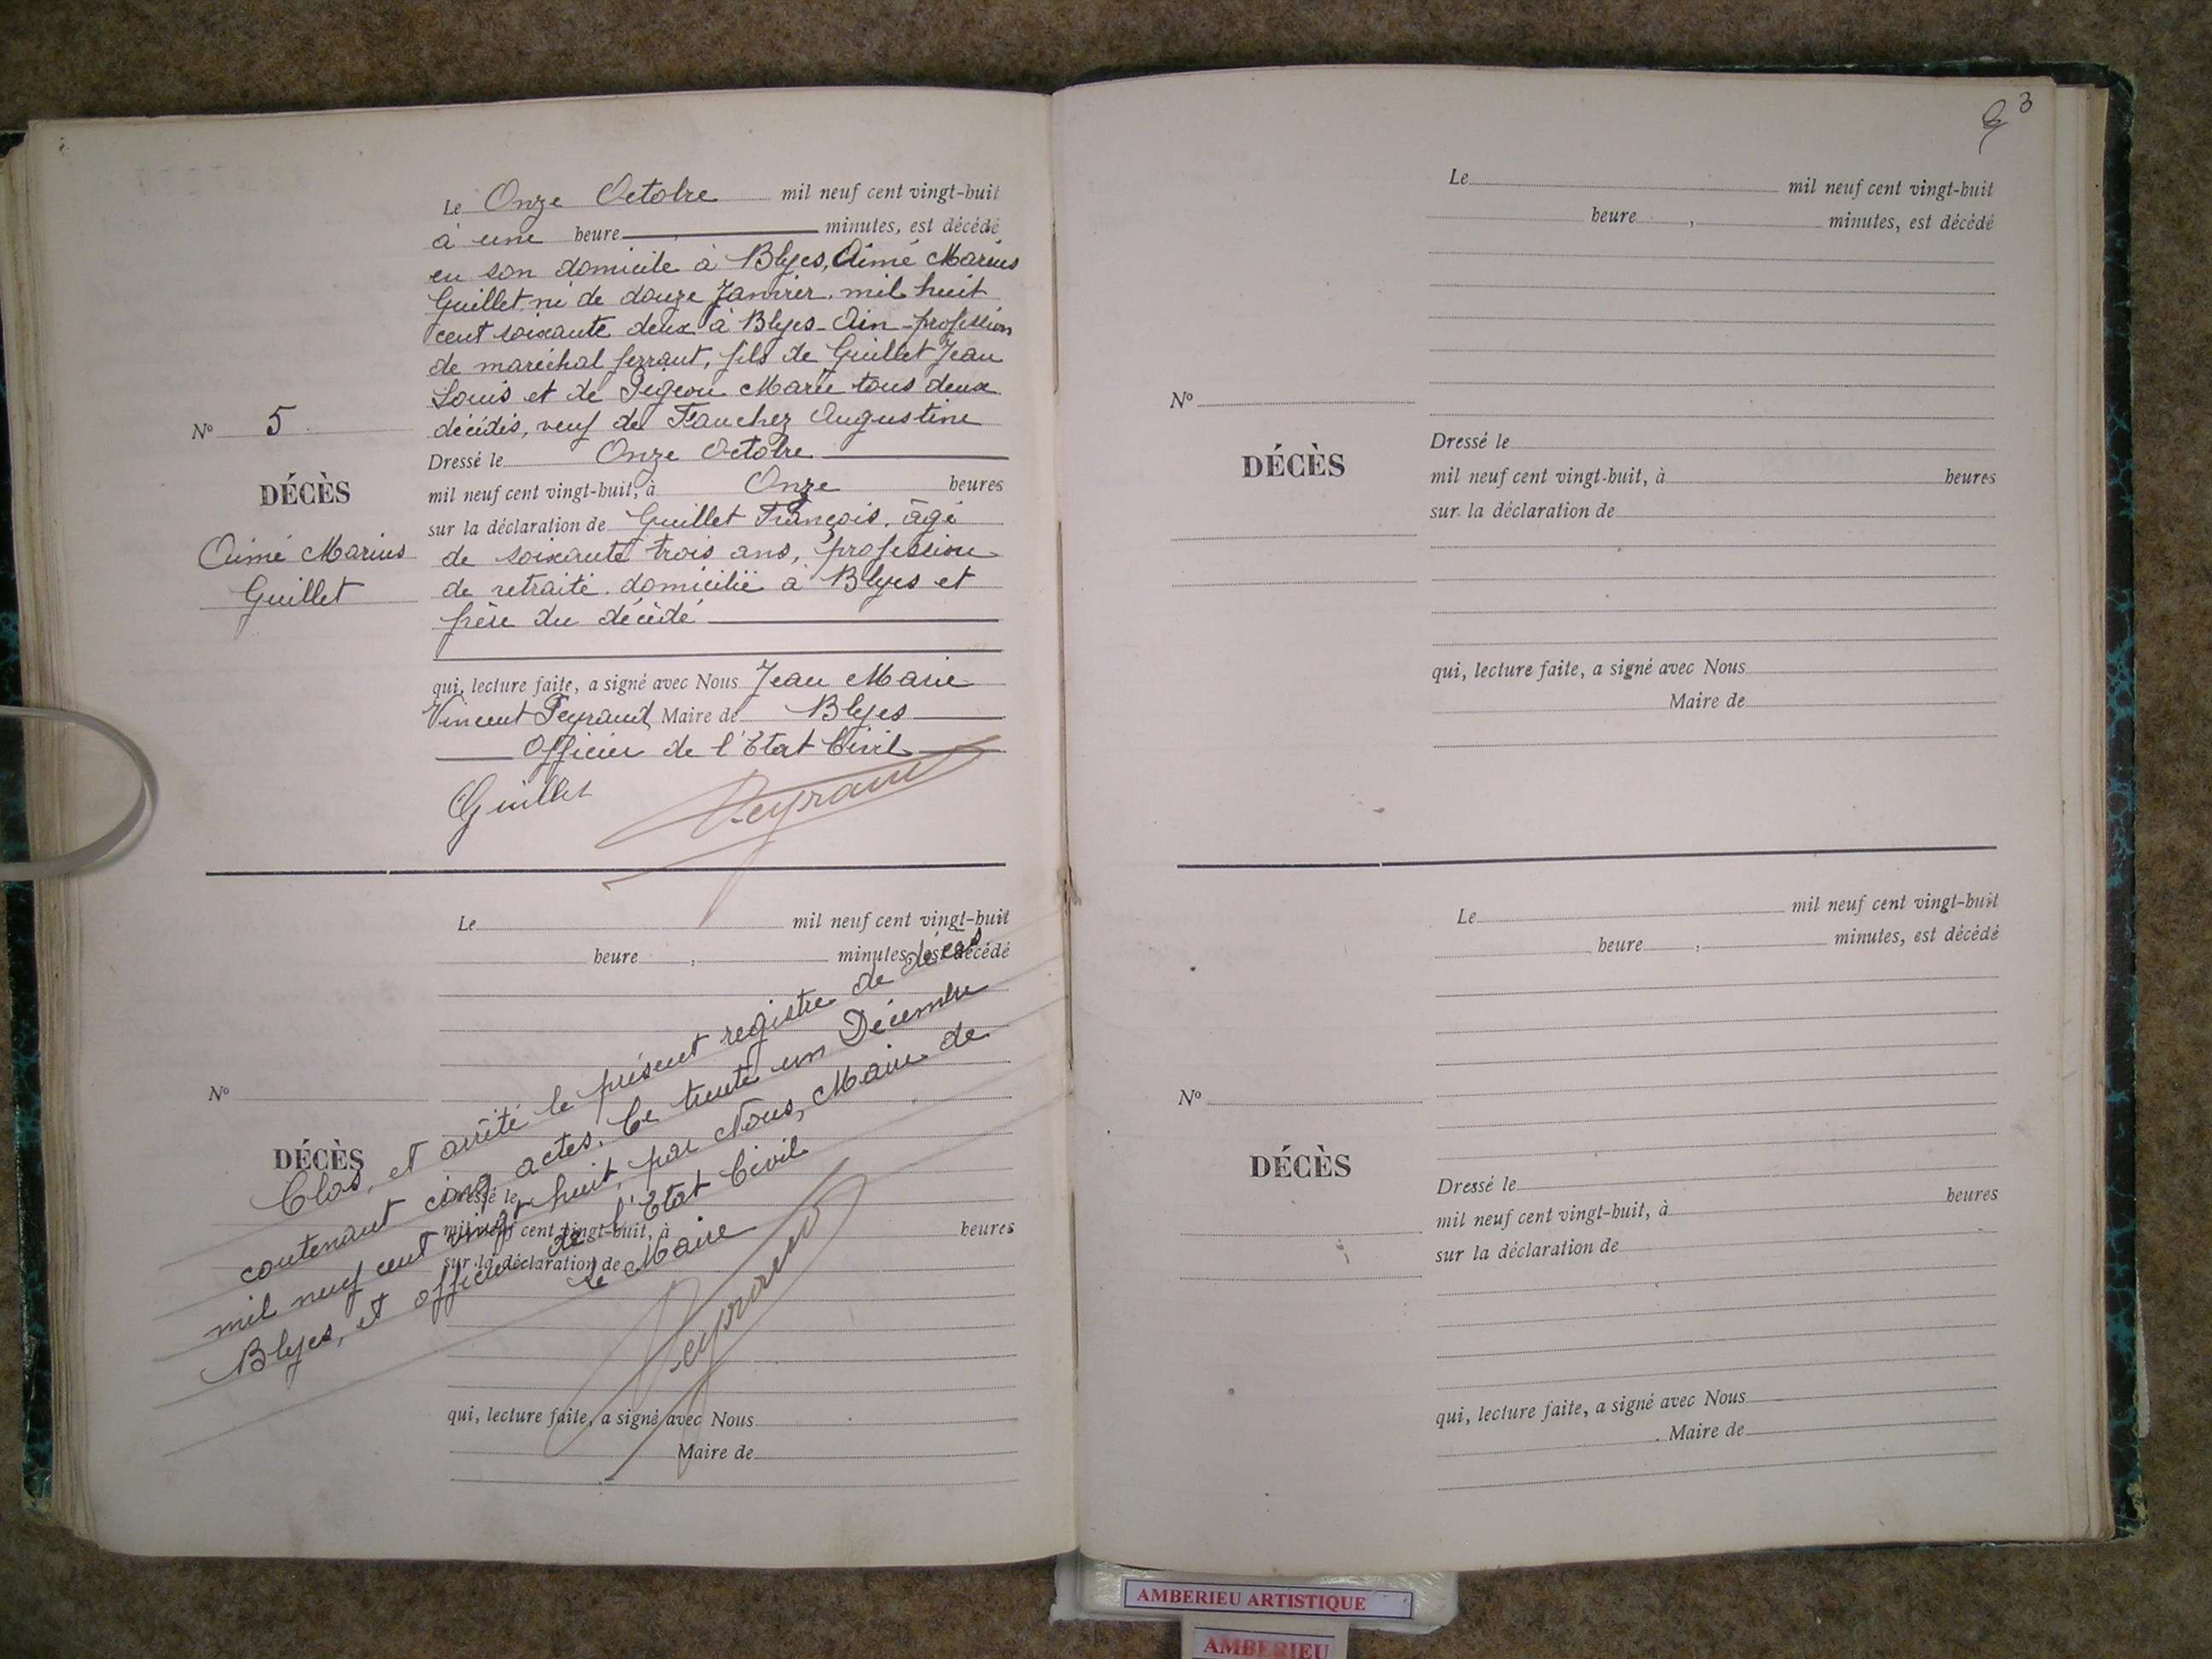 Le Onze Octobre mil neuf cent vingt-huit
à une heure , minutes, est décédé
en son domicile à Blyes, Aimé Marius
Guillet né de douze Janvier mil huit
cent soixante deux à Blyes - Ain - profession
de maréchal ferrant, fils de Guillet Jean
Louis et de Pigeon Marie tous deux
décédés, veuf de Augustine
Nº 5
DÉCÈS
Aimé Marius
Guillet
Dressé le Onze Octobre
mil neuf cent vingt-huit, à Onze heures
sur la déclaration de Guillet François, âgé
de soixante trois ans, profession
de retraité domicilié à Blyes et
frère du décédé
qui, lecture faite, a signé avec Nous Jean Marie
Vincent Peyraud Maire de Blyes
Officier de l'Etat Civil
Guillet Peyraud
Le mil neuf cent vingt-huit
heure , minutes, est décédé
Nº
DÉCÈS
Dressé le
mil neuf cent vingt-huit, à heures
sur la déclaration de
qui, lecture faite, a signé avec Nous
Maire de
Clos, et arrêté le présent registre de décès
contenant cinq actes, le trente un Décembre
mil neuf cent vingt huit, par Nous, Maire de
Blyes, et officier de l'Etat Civil
Le Maire
Peyraud
3
Le mil neuf cent vingt-huit
heure , minutes, est décédé
Nº
DÉCÈS
Dressé le
mil neuf cent vingt-huit, à heures
sur la déclaration de
qui, lecture faite, a signé avec Nous
Maire de
Le mil neuf cent vingt-huit
heure , minutes, est décédé
Nº
DÉCÈS
Dressé le
mil neuf cent vingt-huit, à heures
sur la déclaration de
qui, lecture faite, a signé avec Nous
Maire de
AMBERIEU ARTISTIQUE
AMBERIEU